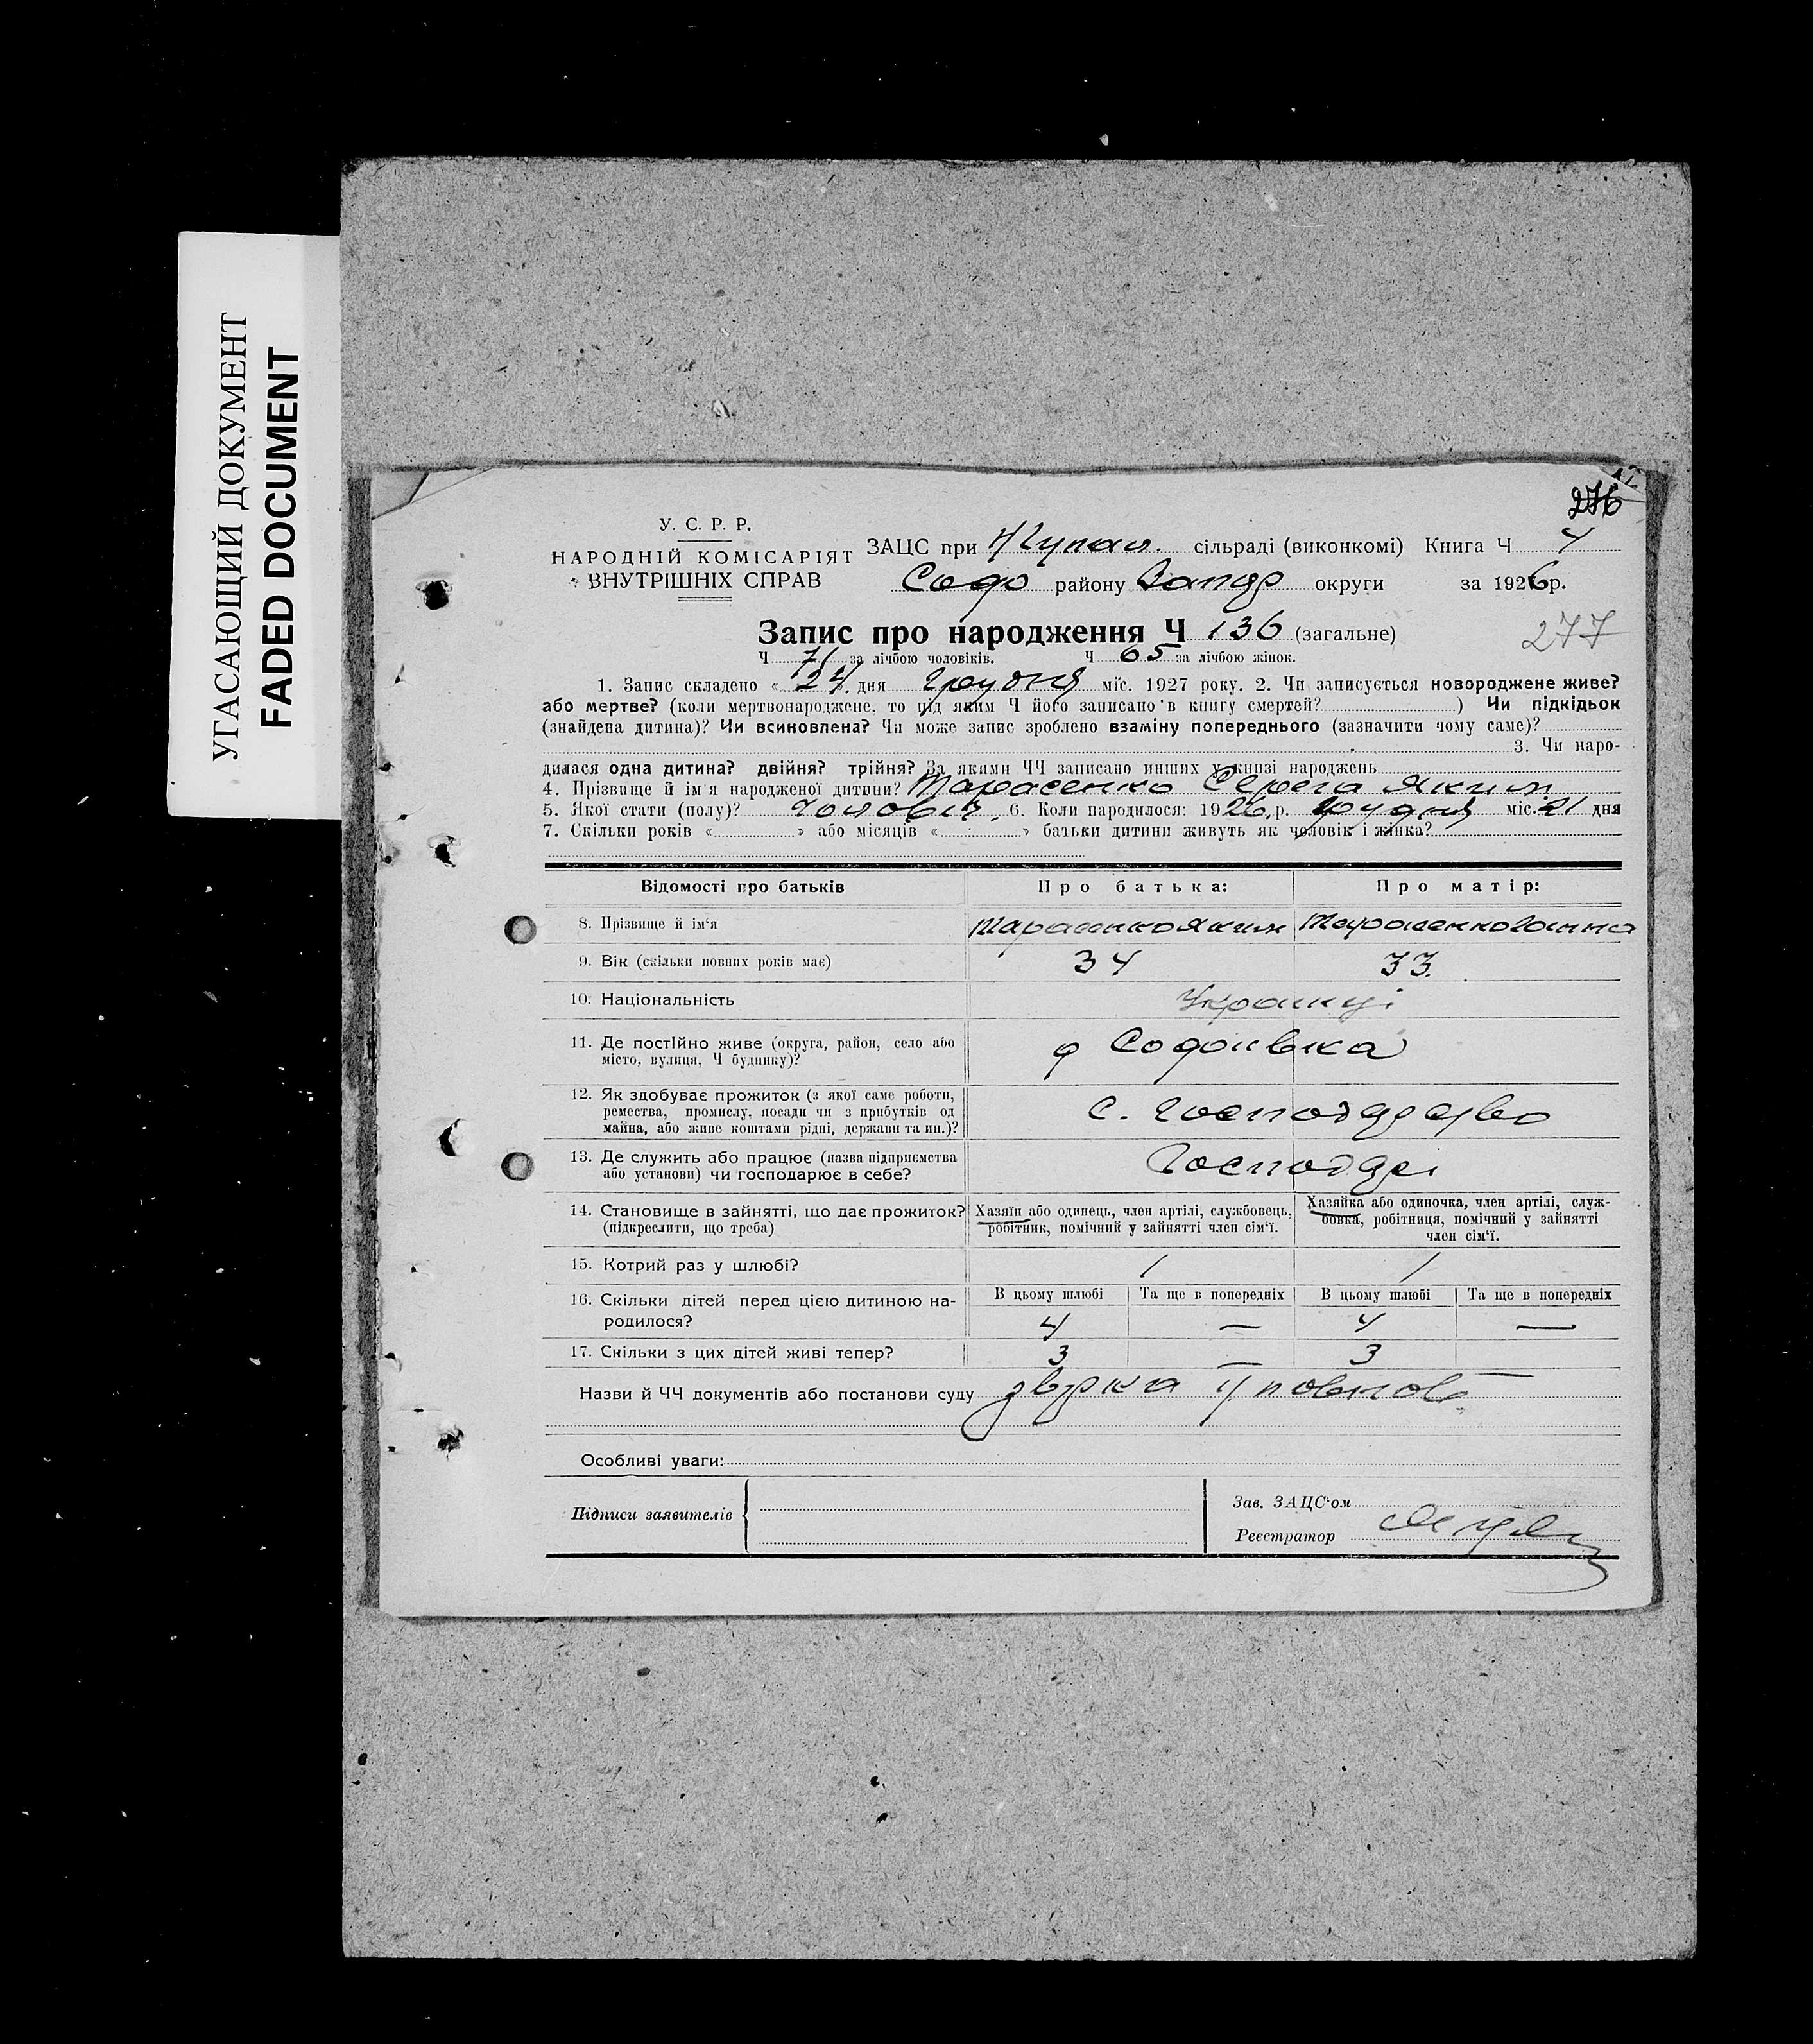 УГАСАЮЩИЙ ДОКУМЕНТ
FADED DOCUMENT
276
У. С. Р. Р.
НАРОДНІЙ КОМІСАРІЯТ
ВНУТРІШНІХ СПРАВ
ЗАЦС при сільраді (виконкомі) Книга Ч 4
району округи за 1926 р.
277
Запис про народження Ч 136 (загальне)
Ч 71 за лічбою чоловіків. Ч 65 за лічбою жінок.
1. Запис складено « 24 » дня Грудня міс. 1927 року. 2. Чи записується новороджене живе?
або мертве? (коли мертвонароджене, то під яким Ч його записано в книгу смертей? ) Чи підкідьок
(знайдена дитина)? Чи всиновлена? Чи може запис зроблено взаміну попереднього (зазначити чому саме)?
3. Чи наро-
дилася одна дитина? двійня? трійня? За якими ЧЧ записано инших у книзі народжень
4. Прізвище й ім'я народженої дитини? Тарасенко Серега Яким
5. Якої стати (полу)? чоловіч. 6. Коли народилося: 1926 р. грудня міс. 21 дня
7. Скільки років « » або місяців « » батьки дитини живуть як чоловік і жінка?
Відомості про батьків Про батька: Про матір:
8. Прізвище й ім'я Тарасенко Яким Тарасенко Ганна
9. Вік (скільки повних років має) 34 33.
10. Національність Українці
11. Де постійно живе (округа, район, село або
місто, вулиця, Ч будинку)?
12. Як здобуває прожиток (з якої саме роботи,
ремества, промислу, посади чи з прибутків од
майна, або живе коштами рідні, держави та ин.)?
с. господарство
13. Де служить або працює (назва підприємства
або установи) чи господарює в себе?
14. Становище в зайнятті, що дає прожиток?
(підкреслити, що треба)
Хазяїн або одинець, член артілі, службовець,
робітник, помічний у зайнятті член сім'ї.
Хазяйка або одиночка, член артілі, служ-
бовка, робітниця, помічний у зайнятті
член сім'ї.
15. Котрий раз у шлюбі? 1 1
16. Скільки дітей перед цією дитиною на-
родилося?
В цьому шлюбі Та ще в попередніх В цьому шлюбі Та ще в попередніх
4 — 4 —
17. Скільки з цих дітей живі тепер? 3 — 3 —
Назви й ЧЧ документів або постанови суду
Особливі уваги:
Підписи заявителів
Зав. ЗАЦС'ом
Реєстратор